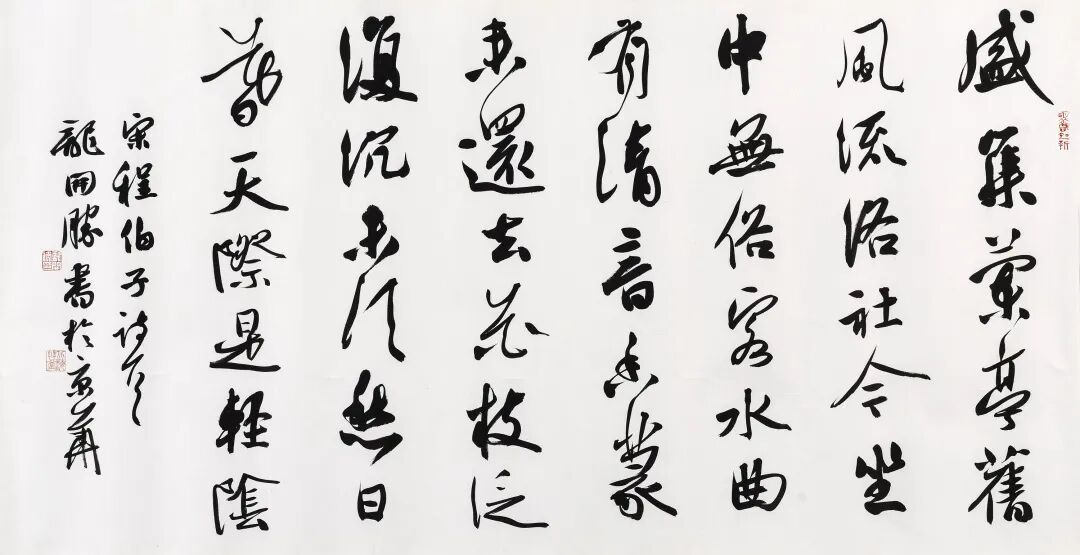 盛集蘭亭舊
風流洛社今坐
中無俗客水曲
有清音香篆
来還去花枝泛
復沉未須愁日
暮天際是輕陰
宋程伯子詩一首
龍開勝書於京華